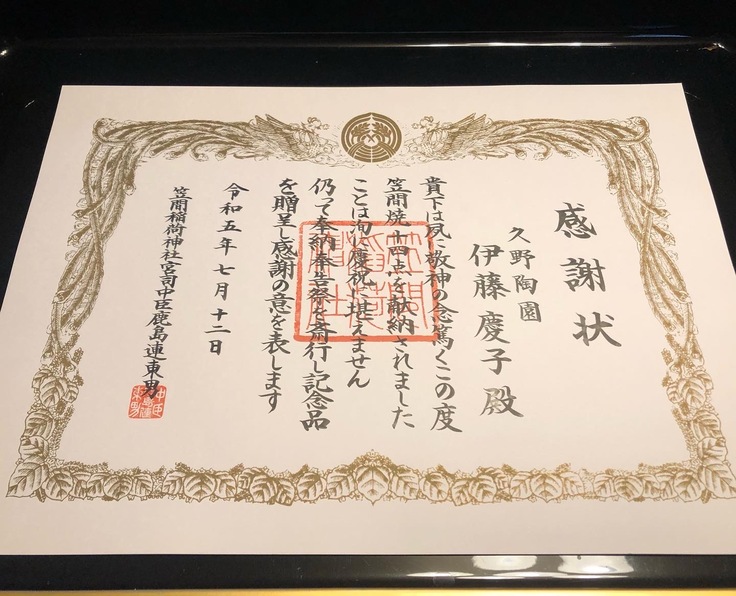 感謝状
久野陶園
伊藤慶子殿
貴下は夙に敬神の念篤くこの度
笠間焼十四点を献納されました
ことは洵に慶祝に堪えません
仍って奉納奉告祭を斎行し記念品
を贈呈し感謝の意を表します
令和五年七月十二日
笠間稲荷神社宮司中臣鹿島連東男